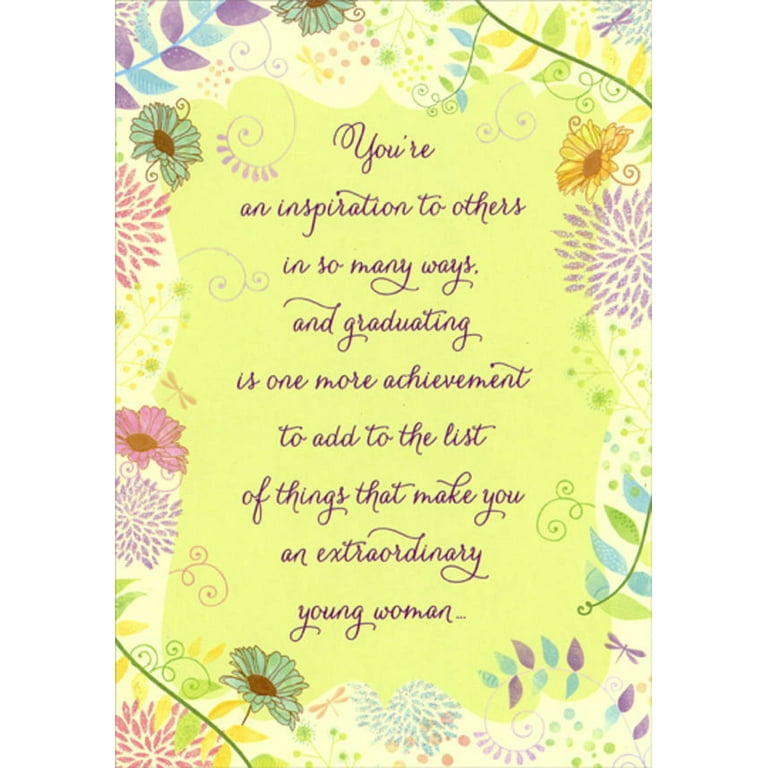 You're
an inspiration to others
in so many ways,
and graduating
is one more achievement
to add to the list
of things that make you
an extraordinary
young woman...